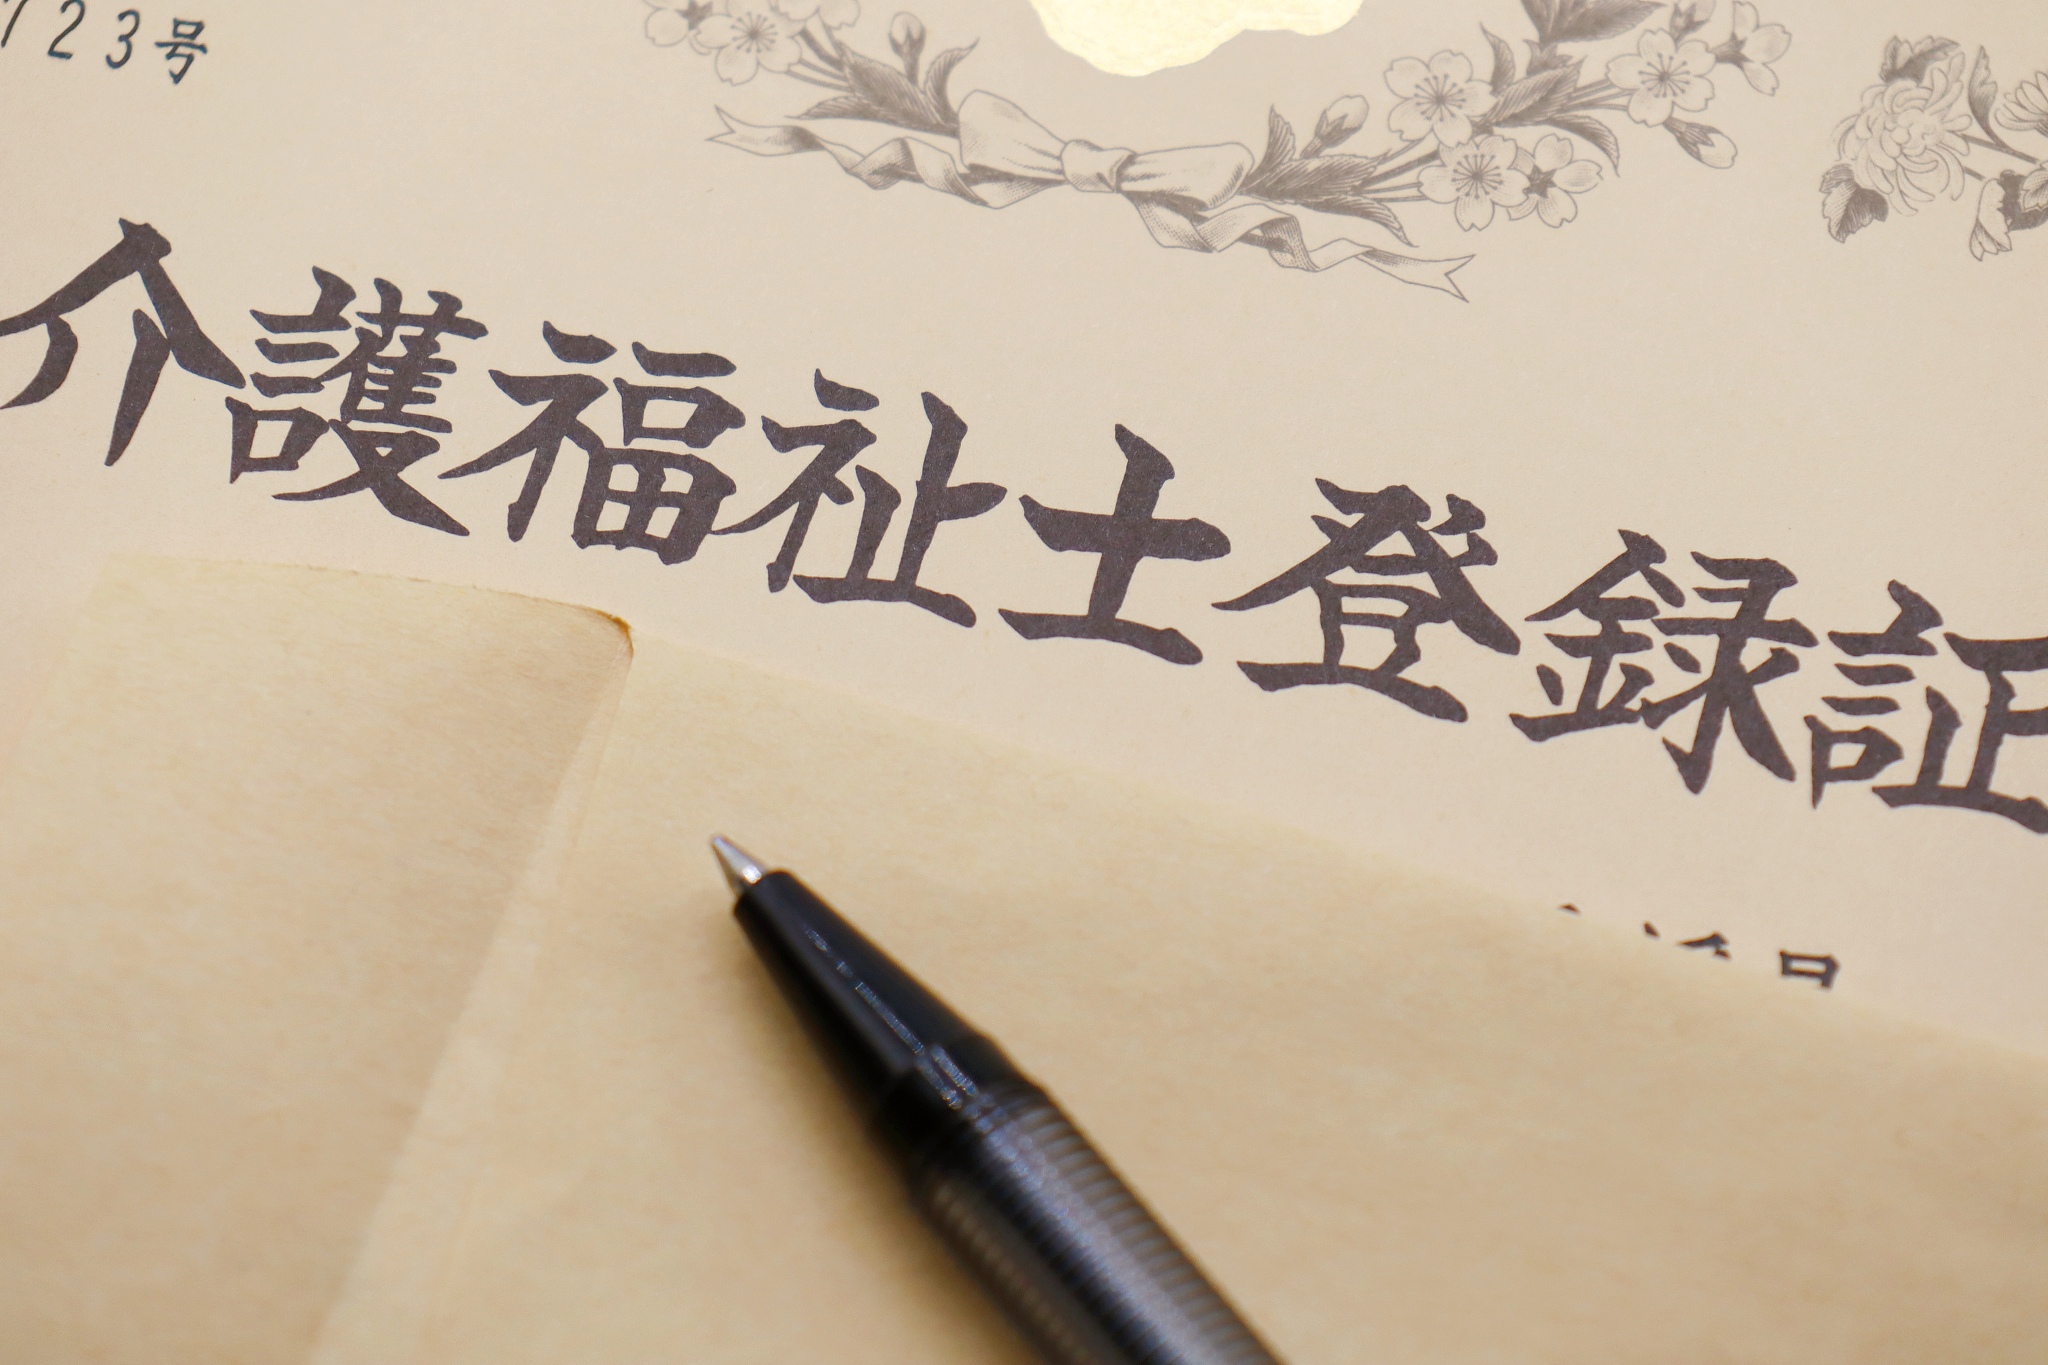 723号
介護福祉士登録証